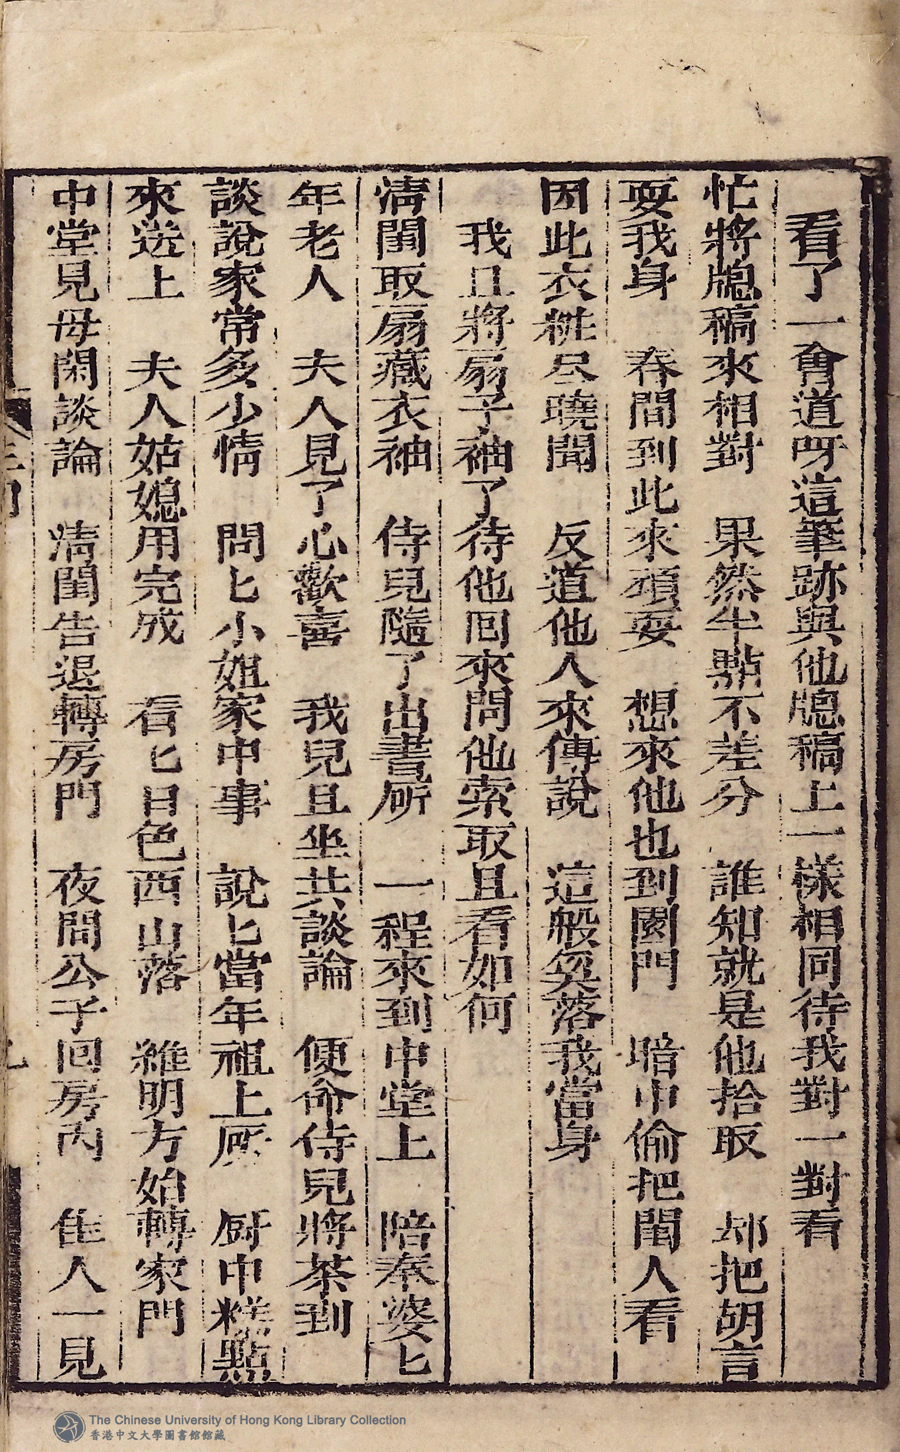 看了一會道呀這筆跡與他牕稿上一樣相同待我對一對看
忙將牕稿來相對　果然半點不差分　誰知就是他拾取　却把胡言
耍我身　春間到此來頑耍　想來他也到園門　暗中偷把閨人看
因此衣粧尽曉聞　反道他人來傳說　這般奚落我當身
我且將扇子袖了待他回來問他索取且看如何
淸閨取扇藏衣袖　侍兒隨了出書所　一程來到中堂上　陪奉婆匕
年老人　夫人見了心歡喜　我兒且坐共談論　便命侍兒將茶到
談說家常多少情　問匕小姐家中事　說匕當年祖上　厨中糕點
來送上　夫人姑媳用完成　看匕日色西山落　維明方始轉家門
中堂見母閑談論　淸閨告退轉房門　夜間公子回房內　佳人一見
The Chinese University of Hong Kong Library Collection
香港中文大學圖書館館藏